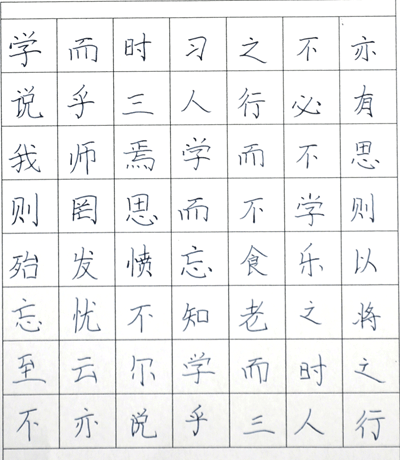 学而时习之不亦
说乎三人行必有
我师焉学而不思
则罔思而不学则
殆发愤忘食乐以
忘忧不知老之将
至云尔学而时之
不亦说乎三人行